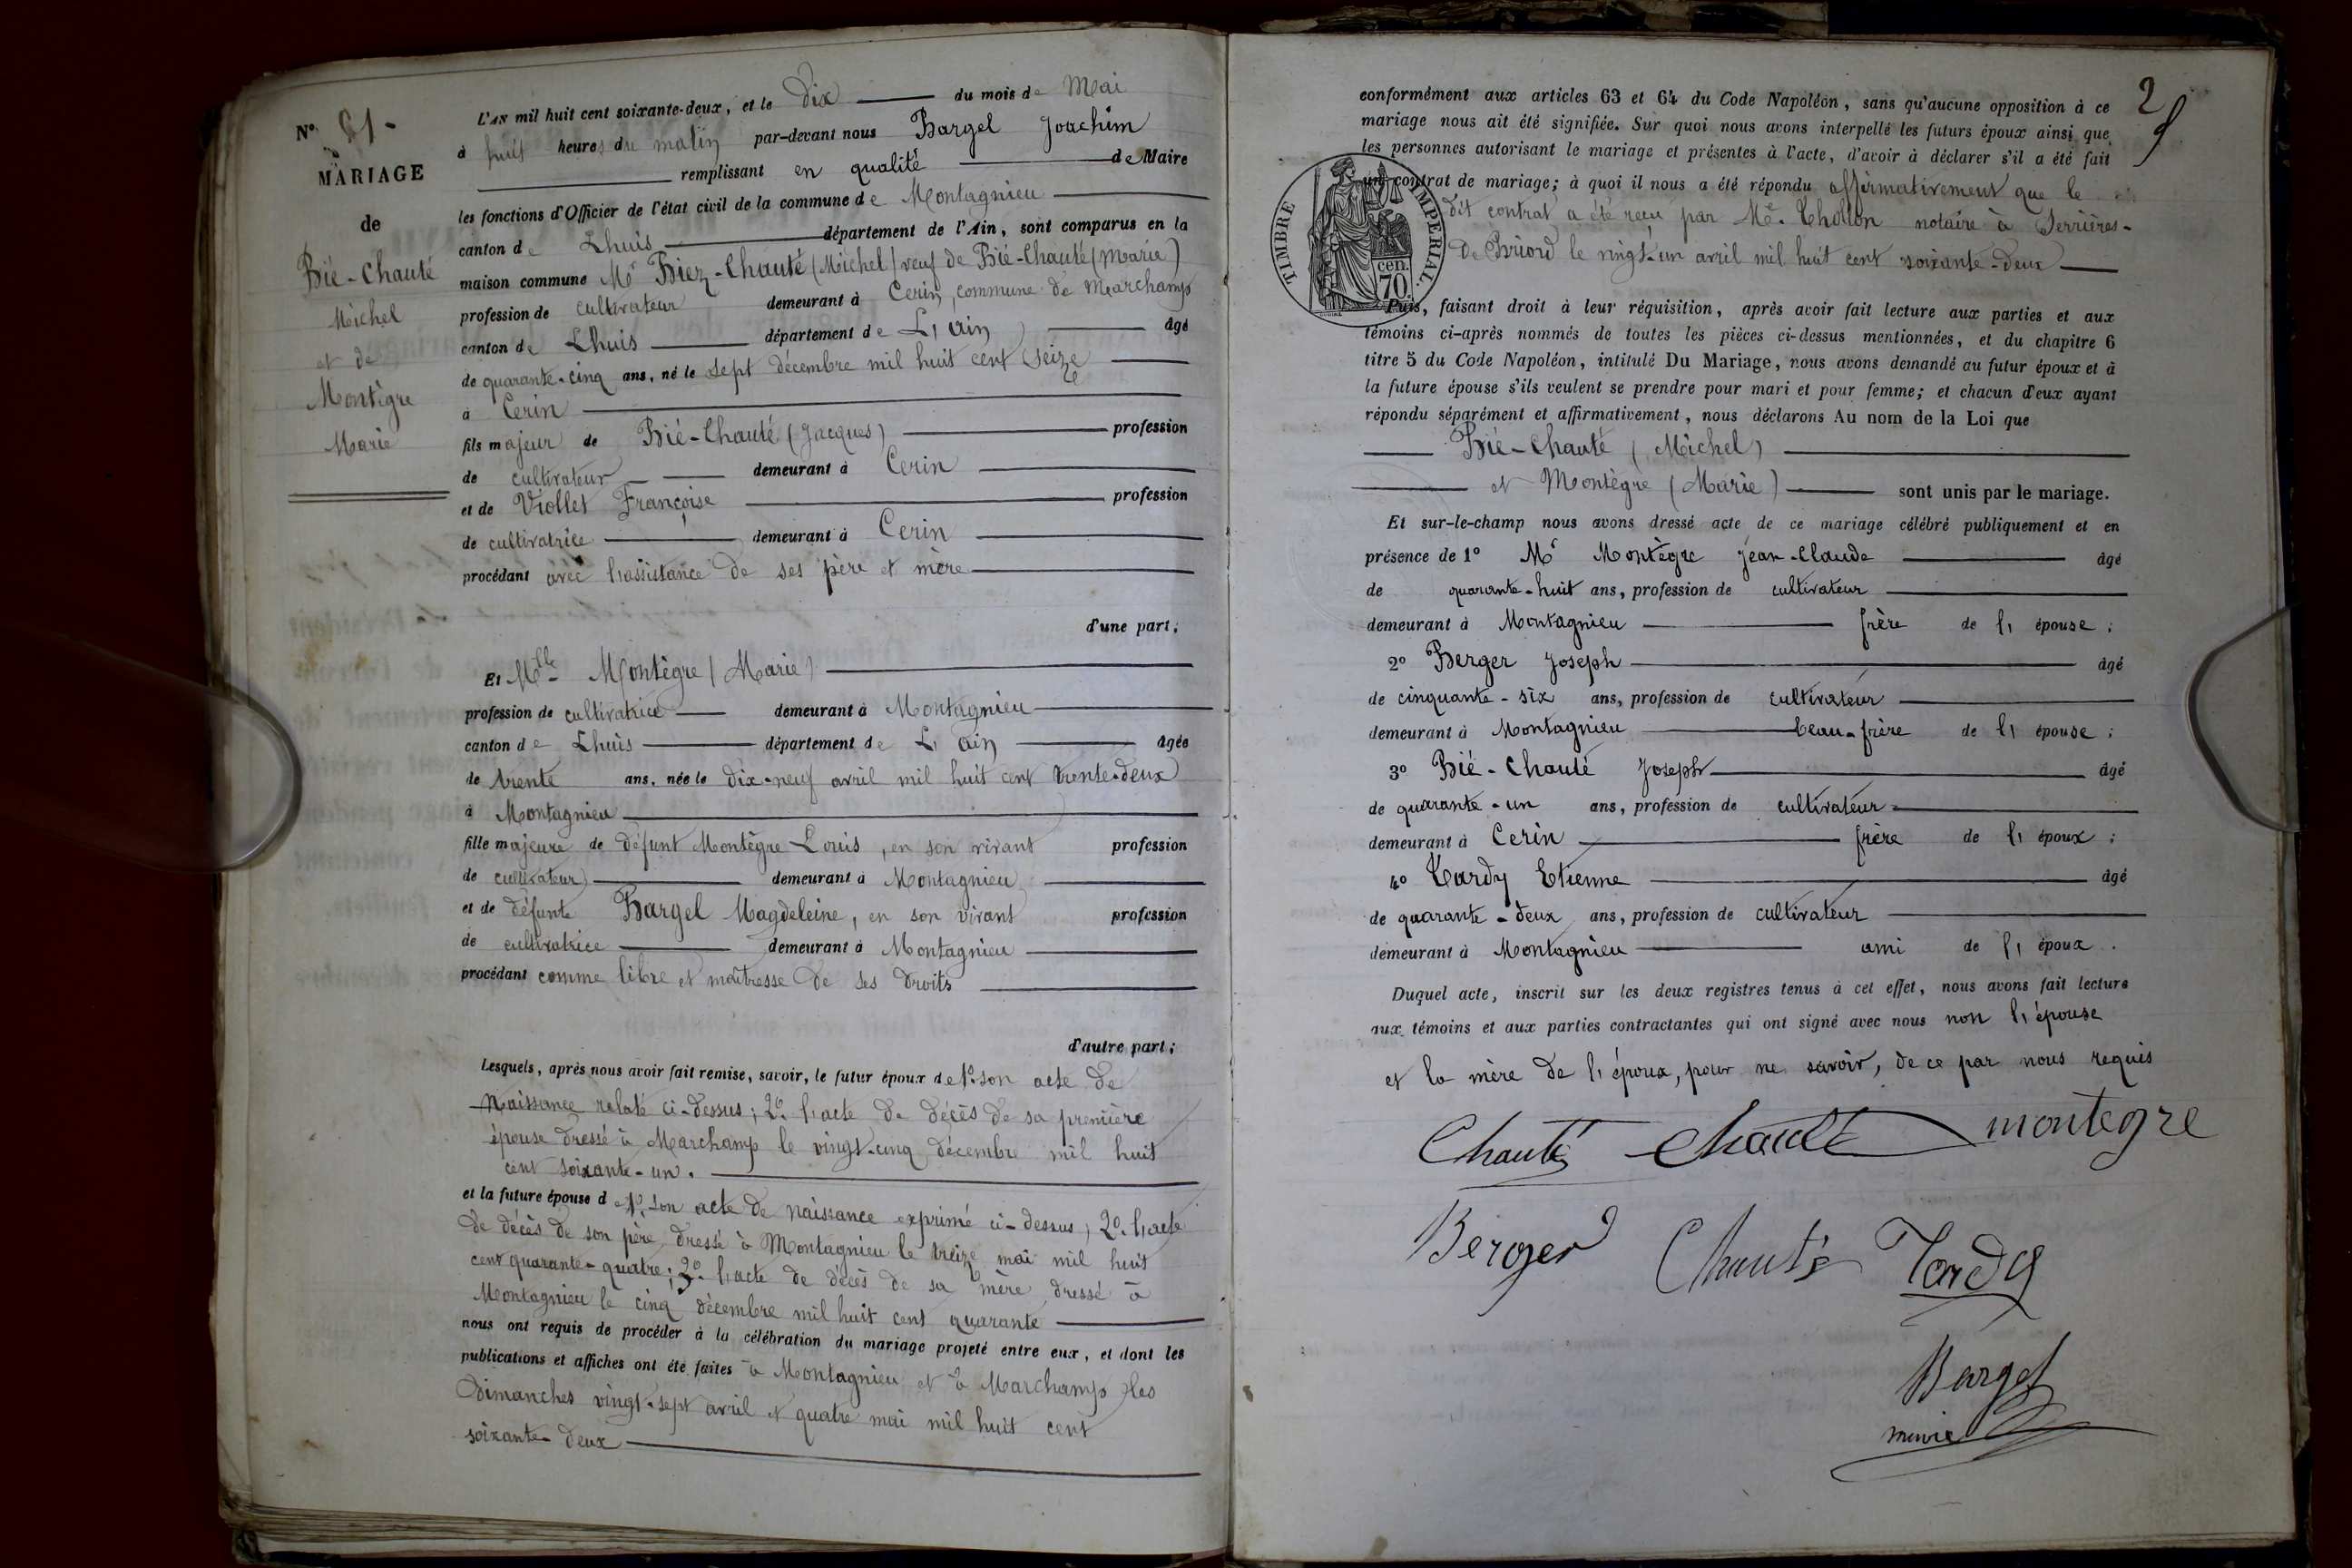 N°
MARIAGE
de
Bié-Chauté
Michel
et de
Montègre
Marie
L'AN mil huit cent soixante-deux, et le dix du mois de Mai
à huit heures du matin par-devant nous Bargel Joachim
remplissant en qualité de Maire
les fonctions d'Officier de l'état civil de la commune de Montagnieu
canton de Lhuis département de l'Ain, sont comparus en la
maison commune Mr Biez-Chauté (Michel) veuf de Bié-Chauté (Marie)
profession de cultivateur demeurant à Cerin, commune de Marchamp
canton de Lhuis département de L'ain âgé
de quarante-cinq ans, né le sept décembre mil huit cent seize
à Cerin
fils majeur de Bié-Chauté (Jacques) profession
de cultivateur demeurant à Cerin
et de Viollet Françoise profession
de cultivatrice demeurant à Cerin
procédant avec l'assistance de ses père et mère
d'une part;
Et Mlle Montègre (Marie)
profession de cultivatrice demeurant à Montagnieu
canton de Lhuis département de L'ain âgée
de trente ans, née le dix-neuf avril mil huit cent trente-deux
à Montagnieu
fille majeure de défunt Montègre Louis, en son vivant profession
de cultivateur demeurant à Montagnieu
et de défunte Bargel Magdeleine, en son vivant profession
de cultivatrice demeurant à Montagnieu
procédant comme libre et maîtresse de ses droits
d'autre part;
Lesquels, après nous avoir fait remise, savoir, le futur époux de 1° son acte de
Naissance relaté ci-dessus; 2° l'acte de décès de sa première
épouse dressé à Marchamp le vingt-cinq décembre mil huit
cent soixante-un.
et la future épouse de 1° son acte de naissance exprimé ci-dessus; 2° l'acte
de décès de son père, dressé à Montagnieu le treize mai mil huit
cent quarante-quatre; 3° l'acte de décès de sa mère, dressé à
Montagnieu le cinq décembre mil huit cent quarante
nous ont requis de procéder à la célébration du mariage projeté entre eux, et dont les
publications et affiches ont été faites à Montagnieu et à Marchamp les
Dimanches vingt-sept avril et quatre mai mil huit cent
soixante-deux
conformément aux articles 63 et 64 du Code Napoléon, sans qu'aucune opposition à ce
mariage nous ait été signifiée. Sur quoi nous avons interpellé les futurs époux ainsi que
les personnes autorisant le mariage et présentes à l'acte, d'avoir à déclarer s'il a été fait
un contrat de mariage; à quoi il nous a été répondu affirmativement que le
dit contrat a été reçu par Me. Thollon notaire à Serrières-
de Briord le vingt-un avril mil huit cent soixante-deux
TIMBRE IMPERIAL
cen.
70
Puis, faisant droit à leur réquisition, après avoir fait lecture aux parties et aux
témoins ci-après nommés de toutes les pièces ci-dessus mentionnées, et du chapitre 6
titre 5 du Code Napoléon, intitulé Du Mariage, nous avons demandé au futur époux et à
la future épouse s'ils veulent se prendre pour mari et pour femme; et chacun d'eux ayant
répondu séparément et affirmativement, nous déclarons Au nom de la Loi que
Bié-Chauté (Michel)
et Montègre (Marie) sont unis par le mariage.
Et sur-le-champ nous avons dressé acte de ce mariage célébré publiquement et en
présence de 1° Mr Montègre Jean-Claude âgé
de quarante-huit ans, profession de cultivateur
demeurant à Montagnieu frère de l'épouse;
2° Berger Joseph âgé
de cinquante-six ans, profession de cultivateur
demeurant à Montagnieu beau-frère de l'épouse;
3° Bié-Chauté Joseph âgé
de quarante-un ans, profession de cultivateur
demeurant à Cerin frère de l'époux;
4° Tardy Etienne âgé
de quarante-deux ans, profession de cultivateur
demeurant à Montagnieu ami de l'époux.
Duquel acte, inscrit sur les deux registres tenus à cet effet, nous avons fait lecture
aux témoins et aux parties contractantes qui ont signé avec nous non l'épouse
et la mère de l'époux, pour ne savoir, de ce par nous requis
Chauté Chauté montegre
Berger Chauté Tardy
Bargel